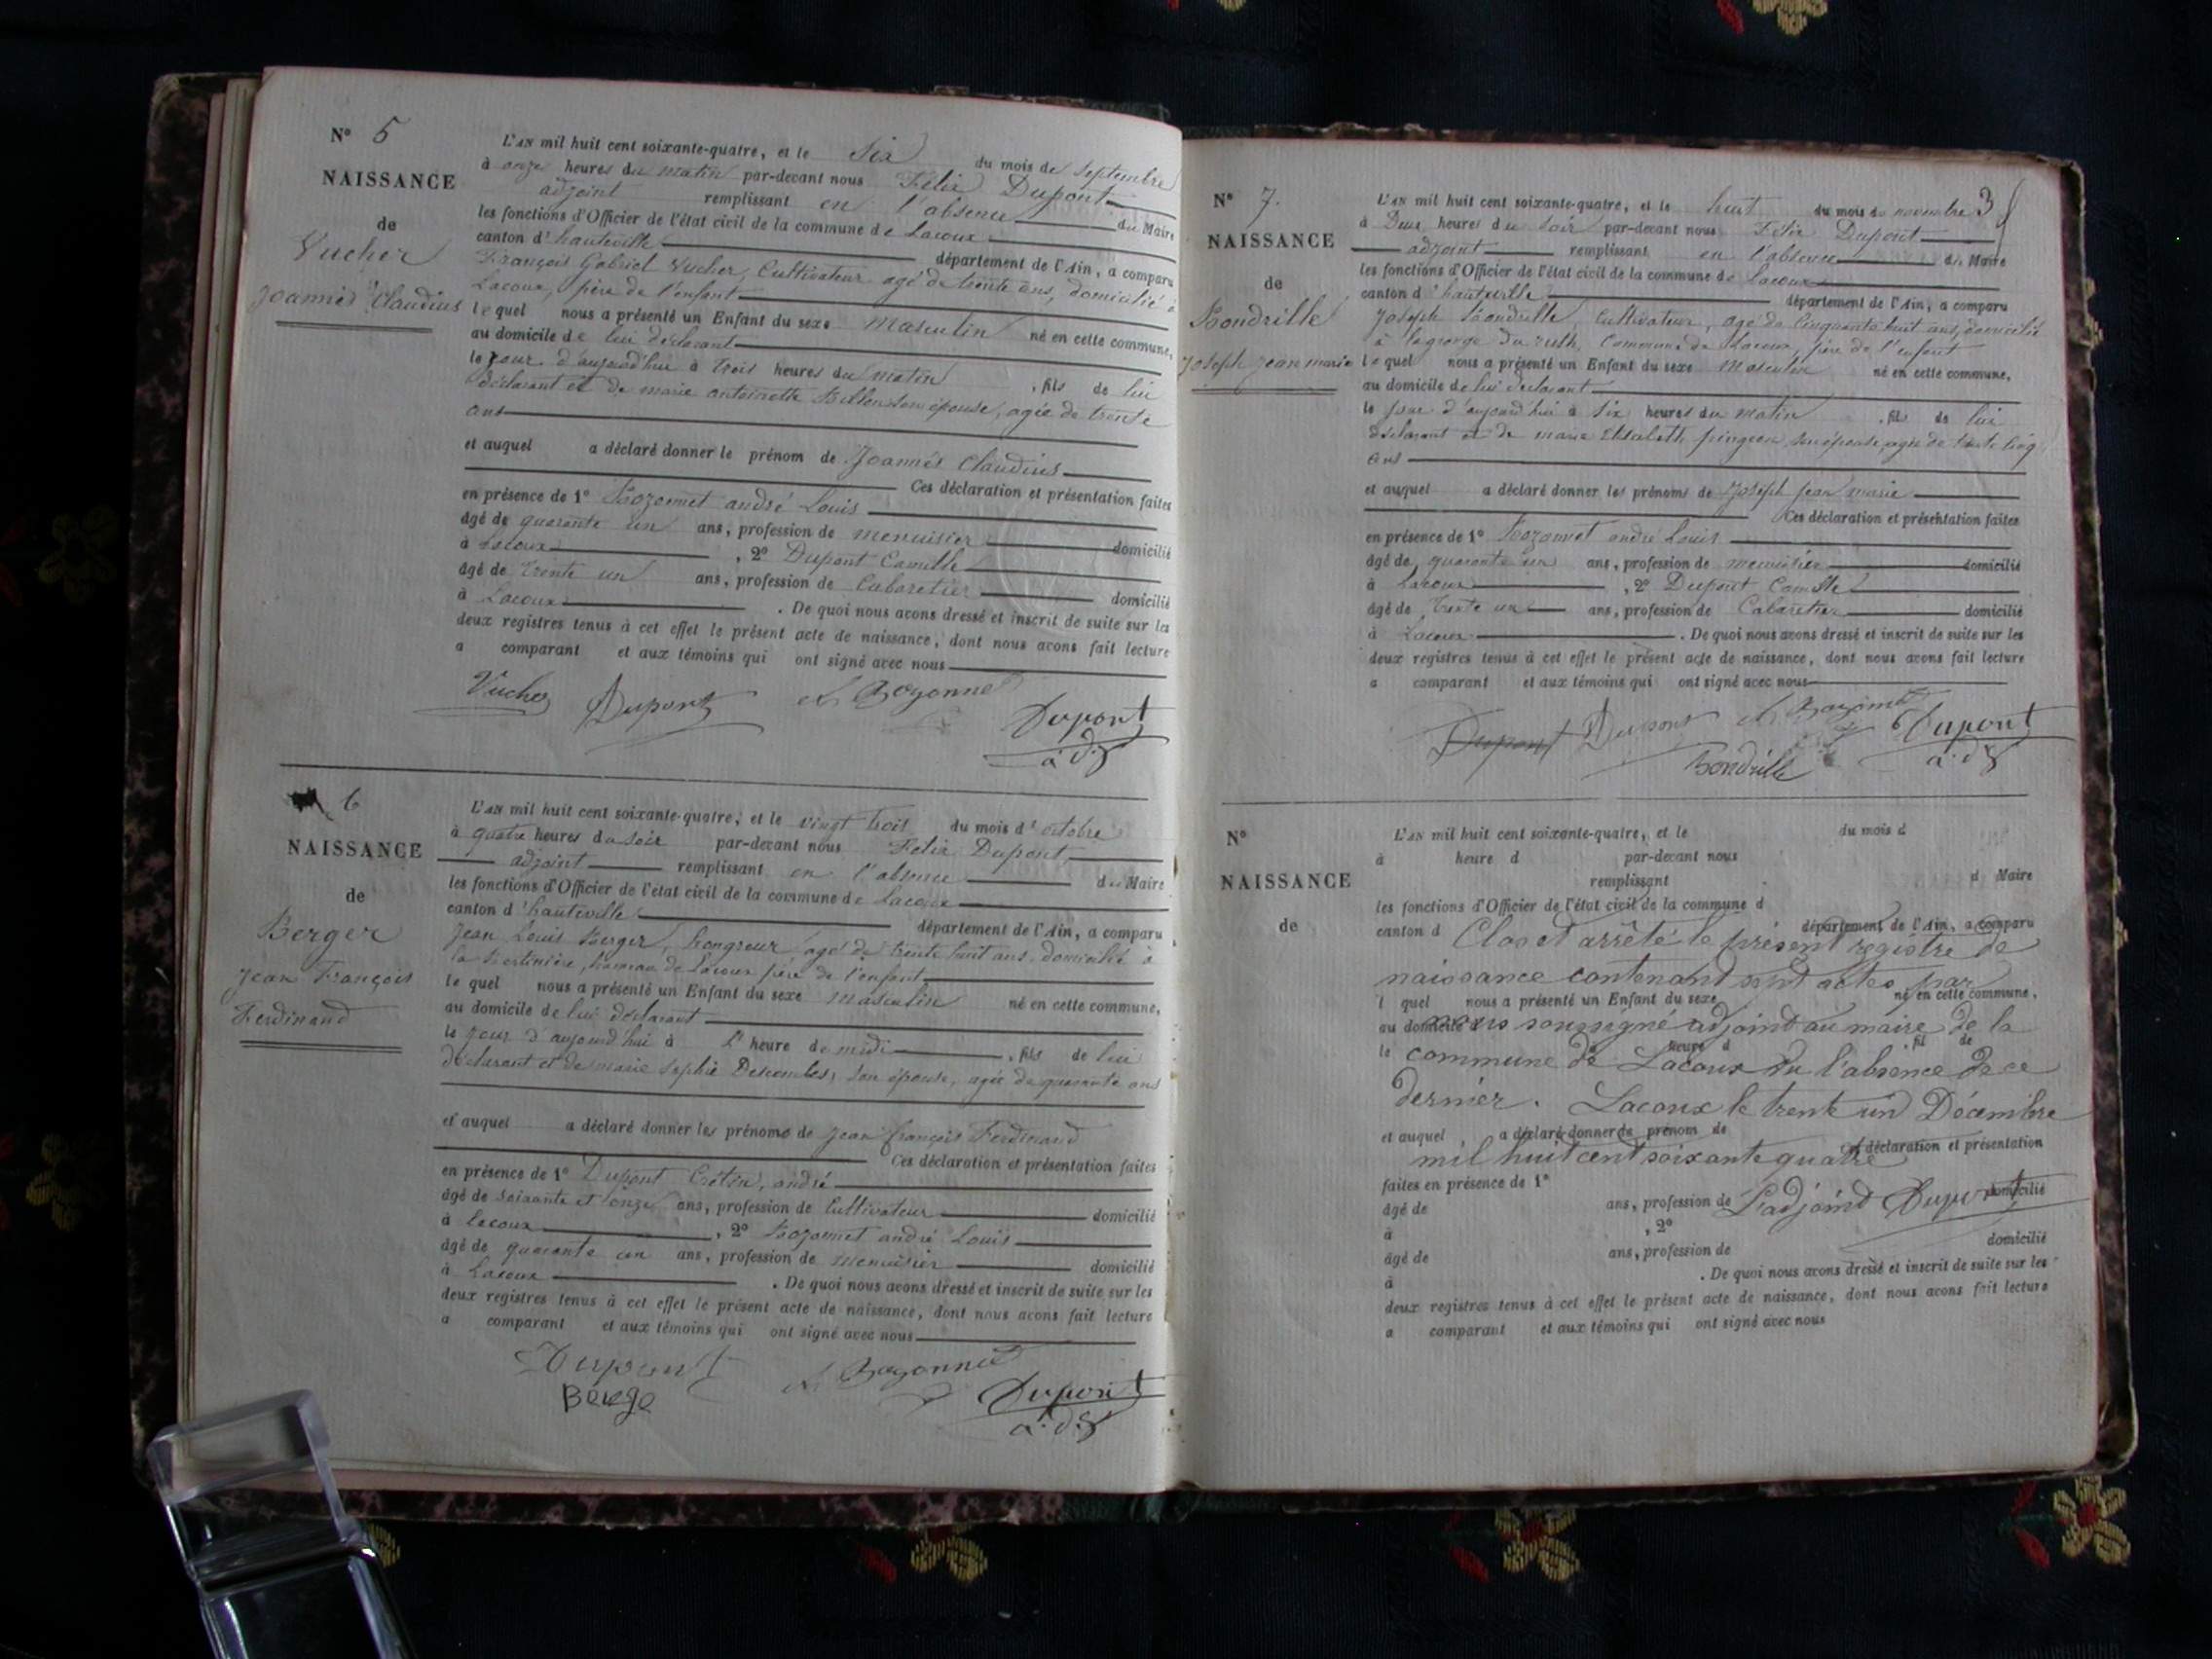 N° 5
NAISSANCE
de
Vucher
Joannès Claudius
L'AN mil huit cent soixante-quatre, et le Six du mois de Septembre
à onze heures du matin par-devant nous Félix Dupont
adjoint remplissant en l'absence du Maire
les fonctions d'Officier de l'état civil de la commune de Lacoux
canton d'hauteville département de l'Ain, a comparu
François Gabriel Vucher, Cultivateur agé de trente ans, domicilié à
Lacoux, père de l'enfant
lequel nous a présenté un Enfant du sexe Masculin né en cette commune,
au domicile de lui déclarant
le jour d'aujourd'hui à trois heures du matin, fils de lui
déclarant et de marie antoinette son épouse, agée de trente
ans
et auquel a déclaré donner le prénom de Joannès Claudius
Ces déclaration et présentation faites
en présence de 1° Bozonnet andré Louis
âgé de quarante un ans, profession de menuisier domicilié
à Lacoux, 2° Dupont Camille
âgé de trente un ans, profession de Cabaretier domicilié
à Lacoux. De quoi nous avons dressé et inscrit de suite sur les
deux registres tenus à cet effet le présent acte de naissance, dont nous avons fait lecture
a comparant et aux témoins qui ont signé avec nous
Vucher Dupont Bozonnet
Dupont
6
NAISSANCE
de
Berger
Jean François
Ferdinand
L'AN mil huit cent soixante-quatre, et le vingt trois du mois d'octobre
à quatre heures du soir par-devant nous Felix Dupont
adjoint remplissant en l'absence du Maire
les fonctions d'Officier de l'état civil de la commune de Lacoux
canton d'hauteville département de l'Ain, a comparu
Jean Louis Berger, hongreur, agé de trente huit ans, domicilié à
la hameau de Lacoux père de l'enfant
lequel nous a présenté un Enfant du sexe masculin né en cette commune,
au domicile de lui déclarant
le jour d'aujourd'hui à l'heure de midi, fils de lui
déclarant et de marie Sophie Descombes, son épouse, agée de quarante ans
et auquel a déclaré donner les prénoms de Jean françois Ferdinand
Ces déclaration et présentation faites
en présence de 1° Dupont Crétin, andré
âgé de soixante et onze ans, profession de Cultivateur domicilié
à Lacoux, 2° Bozonnet andré Louis
âgé de quarante un ans, profession de menuisier domicilié
à Lacoux. De quoi nous avons dressé et inscrit de suite sur les
deux registres tenus à cet effet le présent acte de naissance, dont nous avons fait lecture
a comparant et aux témoins qui ont signé avec nous
Dupont Bozonnet
Dupont
3
N° 7.
NAISSANCE
de
Bondrille
Joseph jean marie
L'AN mil huit cent soixante-quatre, et le huit du mois de novembre
à Deux heures du soir par-devant nous Felix Dupont
adjoint remplissant en l'absence du Maire
les fonctions d'Officier de l'état civil de la commune de Lacoux
canton d'hauteville département de l'Ain, a comparu
Joseph Bondrille, Cultivateur, agé de Cinquante huit ans, domicilié
à Commune de Lacoux, père de l'enfant
lequel nous a présenté un Enfant du sexe Masculin né en cette commune,
au domicile de lui déclarant
le jour d'aujourd'hui à six heures du matin, fils de lui
déclarant et de marie Elisabeth pingeon, son épouse, agée de trente cinq
ans
et auquel a déclaré donner les prénoms de Joseph jean marie
Ces déclaration et présentation faites
en présence de 1° Bozonnet andré Louis
âgé de quarante un ans, profession de menuisier domicilié
à Lacoux, 2° Dupont Camille
âgé de trente un ans, profession de Cabaretier domicilié
à Lacoux. De quoi nous avons dressé et inscrit de suite sur les
deux registres tenus à cet effet le présent acte de naissance, dont nous avons fait lecture
a comparant et aux témoins qui ont signé avec nous
Dupont Dupont Bozonnet Dupont
Bondrille
N°
NAISSANCE
de
L'AN mil huit cent soixante-quatre, et le du mois d
à heure d par-devant nous
remplissant d Maire
les fonctions d'Officier de l'état civil de la commune d
canton d département de l'Ain, a comparu
Clos et arrêté le présent registre de
naissance contenant sept actes par
l quel nous a présenté un Enfant du sexe né en cette commune,
au domicile d
nous soussigné adjoint au maire de la
le heure d , fil de
commune de Lacoux en l'absence de ce
dernier. Lacoux le trente un Décembre
et auquel a déclaré donner le prénom de
déclaration et présentation
mil huit cent soixante quatre
faites en présence de 1°
âgé de ans, profession de domicilié
L'adjoint Dupont
à , 2°
âgé de ans, profession de domicilié
à . De quoi nous avons dressé et inscrit de suite sur les
deux registres tenus à cet effet le présent acte de naissance, dont nous avons fait lecture
a comparant et aux témoins qui ont signé avec nous